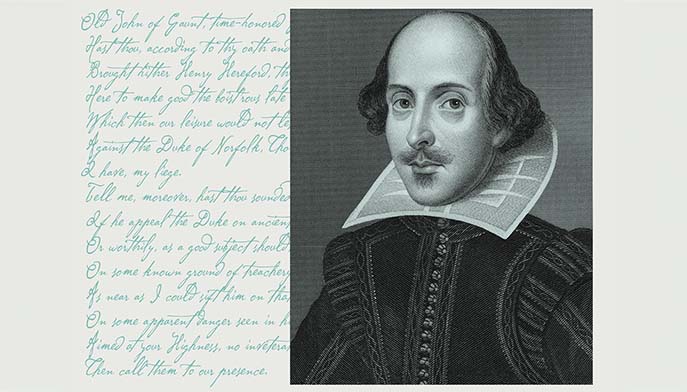 Old John of Gaunt, time-honored
Hast thou, according to thy oath and
Brought hither Henry Hereford, thy
Here to make good the boistrous late
Which then our leisure would not le
Against the Duke of Norfolk, Tho
I have, my liege.
Tell me, moreover, hast thou sounded
If he appeal the Duke on ancien
Or worthily, as a good subject should
On some known ground of treachery
As near as I could sift him on tha
On some apparent danger seen in h
Aimed at your Highness, no inveterat
Then call them to our presence.